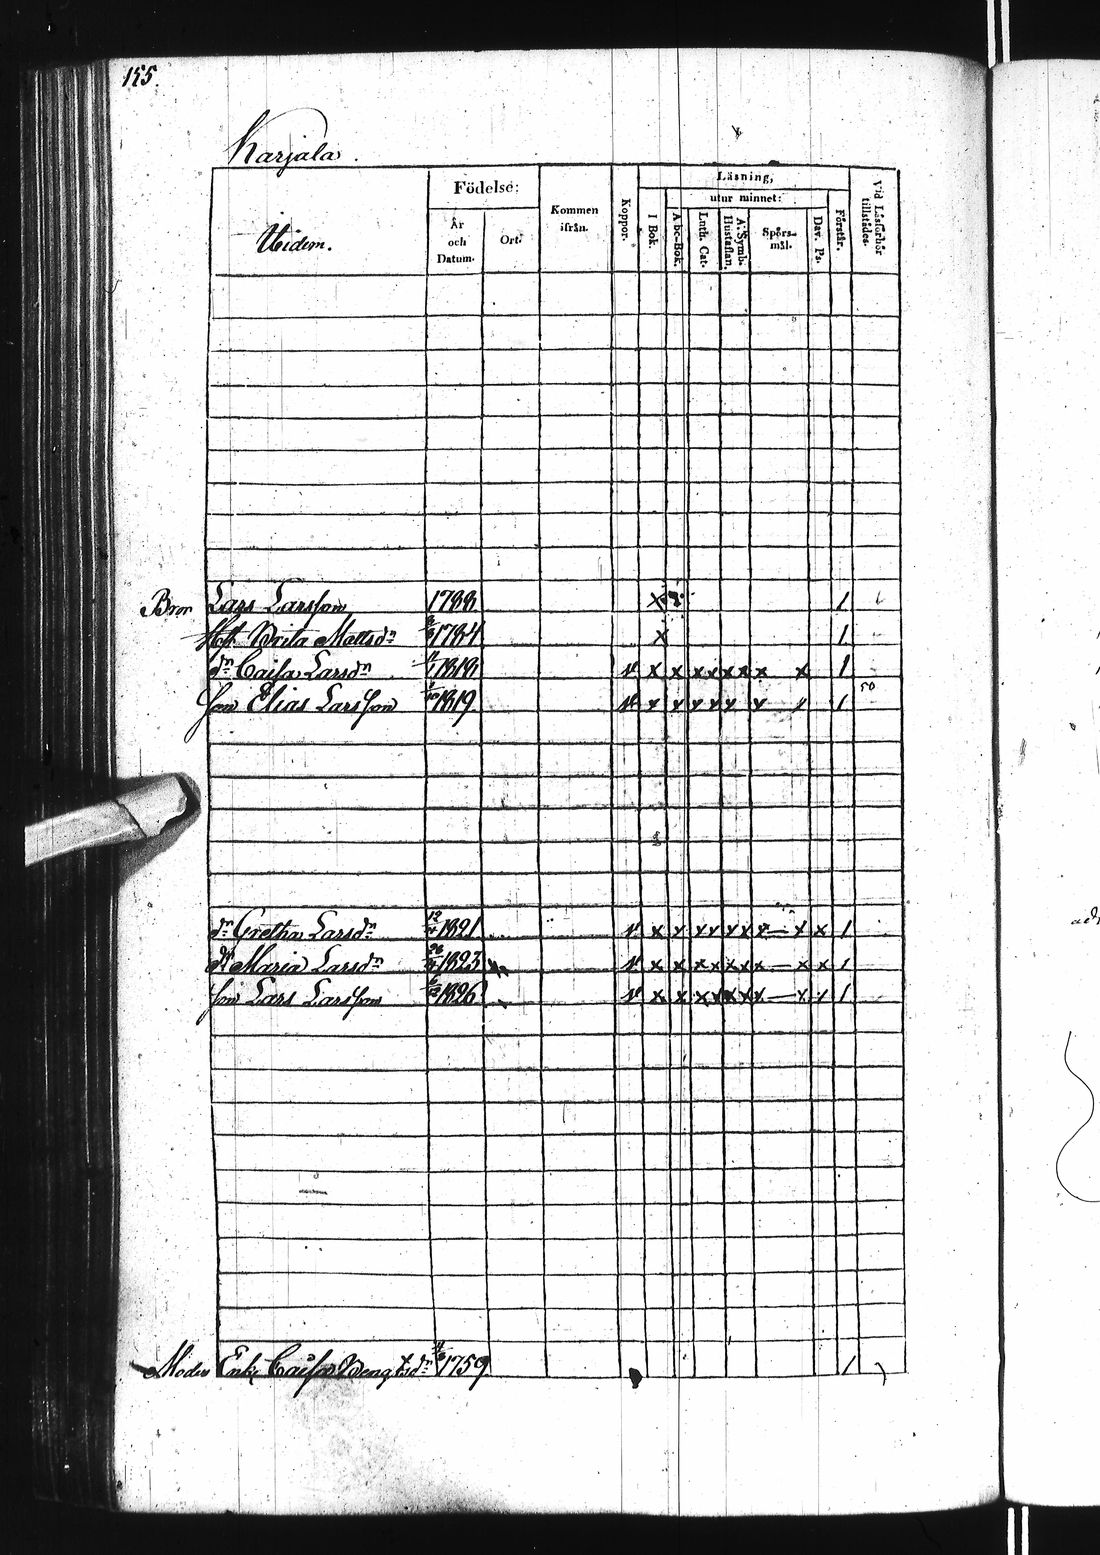 155.
Karjala.
Uidem.
Födelse:
År och Datum.
Ort.
Kommen ifrån.
Koppor.
Läsning,
utur minnet:
I Bok.
Abc-Bok.
Luth. Cat.
A. Symb. Hustaflan.
Spörs-mål.
Dav. Ps.
Förstår.
Vid Läsförhör tillstädes.
Bror Lars Larsson 1788 x 1
Hust Brita Mattsdr 1784 x 1
dr Caisa Larsdr 1818 x x x x x x x x 1
50
Son Elias Larsson 1819 x x x x x x x 1
dr Gretha Larsdr 12 1821 x x x x x x x — x x 1
dr Maria Larsdr 26 1823 x x x x x x x — x x 1
Son Lars Larsson 1826 x x x x x x x — x x 1
Moder Enk. Caisa Bengtsdr 1759 1